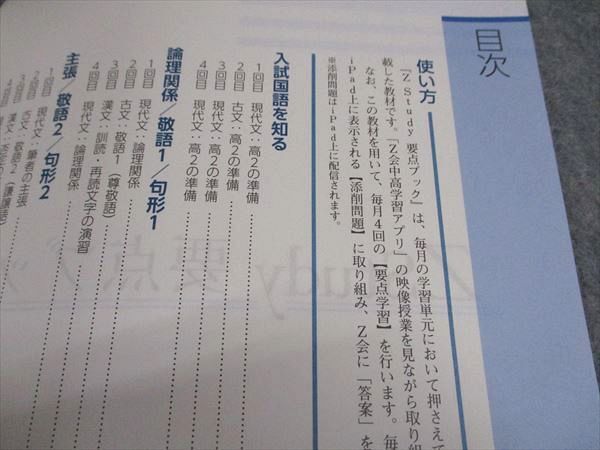 目次
使い方
『Z Study 要点ブック』は、毎月の学習単元において押さえて
載した教材です。『Z会中高学習アプリ』の映像授業を見ながら取り組
なお、この教材を用いて、毎月4回の【要点学習】を行います。毎
iPad上に表示される【添削問題】に取り組み、Z会に「答案」を
※添削問題はiPad上に配信されます。
入試国語を知る
1回目 現代文：高2の準備
2回目 古文：高2の準備
3回目 現代文：高2の準備
4回目 現代文：高2の準備
論理関係／敬語1／句形1
1回目 現代文：論理関係
2回目 古文：敬語1（尊敬語）
3回目 漢文：訓読・再読文字の演習
4回目 現代文：論理関係
主張／敬語2／句形2
1回目 現代文：筆者の主張
2回目 古文：敬語2（謙譲語）
3回目 漢文：
4回目